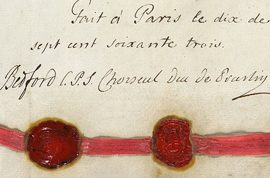 Fait à Paris le dix de
sept cent soixante trois.
Bedford C.P.S. Choiseul duc de Praslin